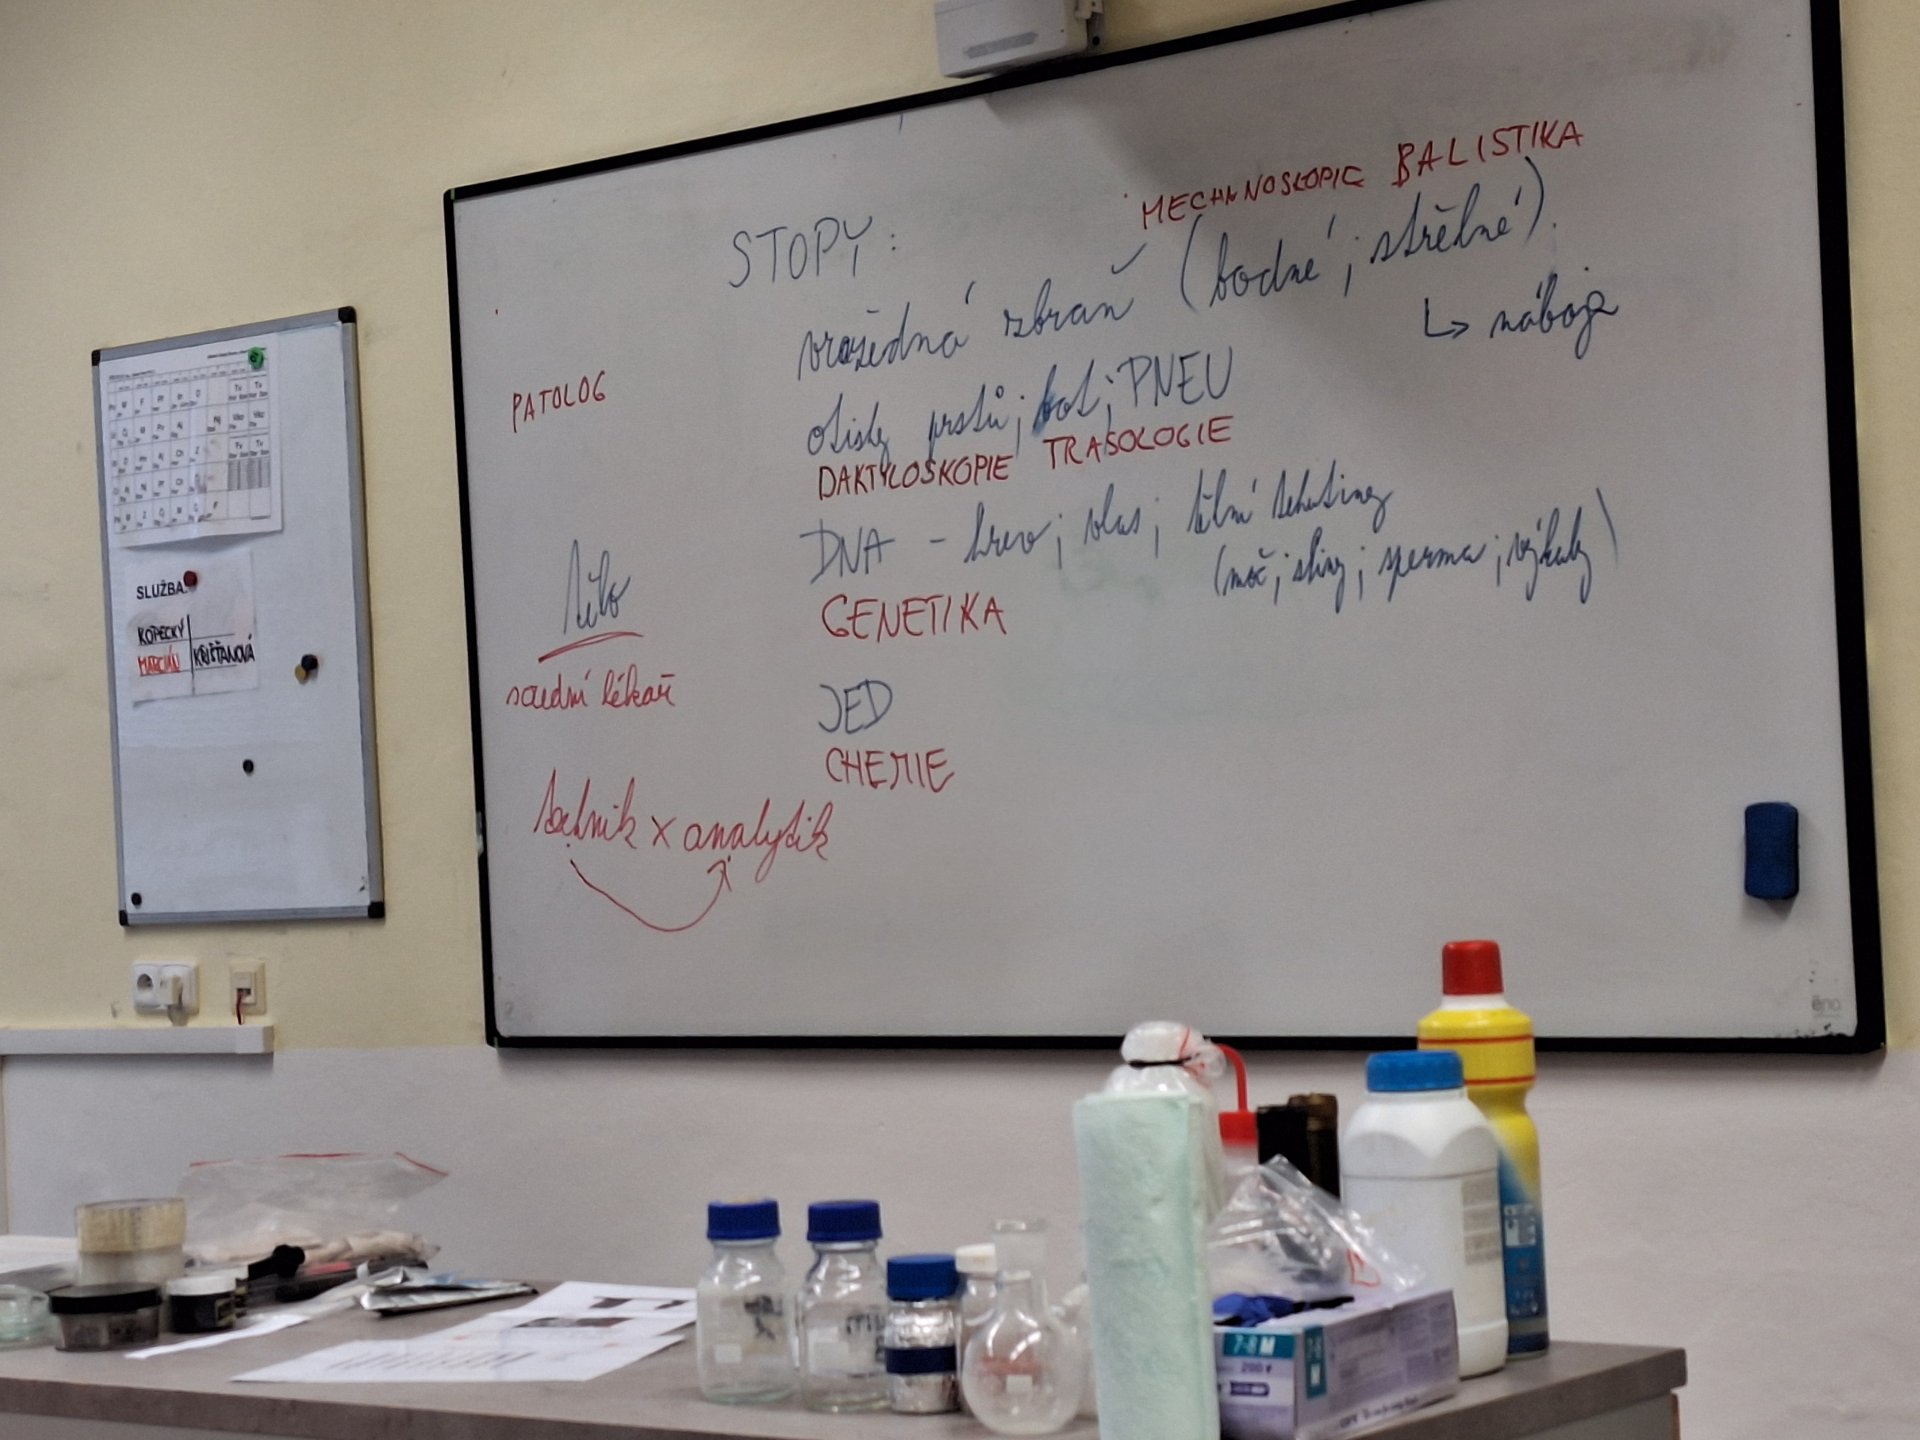 STOPY:
MECHANOSKOPIE BALISTIKA
vražedná zbraň (bodné; střelné).
↳ náboje
otisky prstů; bot; PNEU
DAKTYLOSKOPIE TRASOLOGIE
DNA - krev; vlas; tělní tekutiny
(moč; sliny; sperma; výkaly)
GENETIKA
JED
CHEMIE
PATOLOG
tělo
soudní lékař
technik x analytik
SLUŽBA:
KOPECKÝ
MARCIÁN KŘIŠŤANOVÁ
eno
7-8 M
200